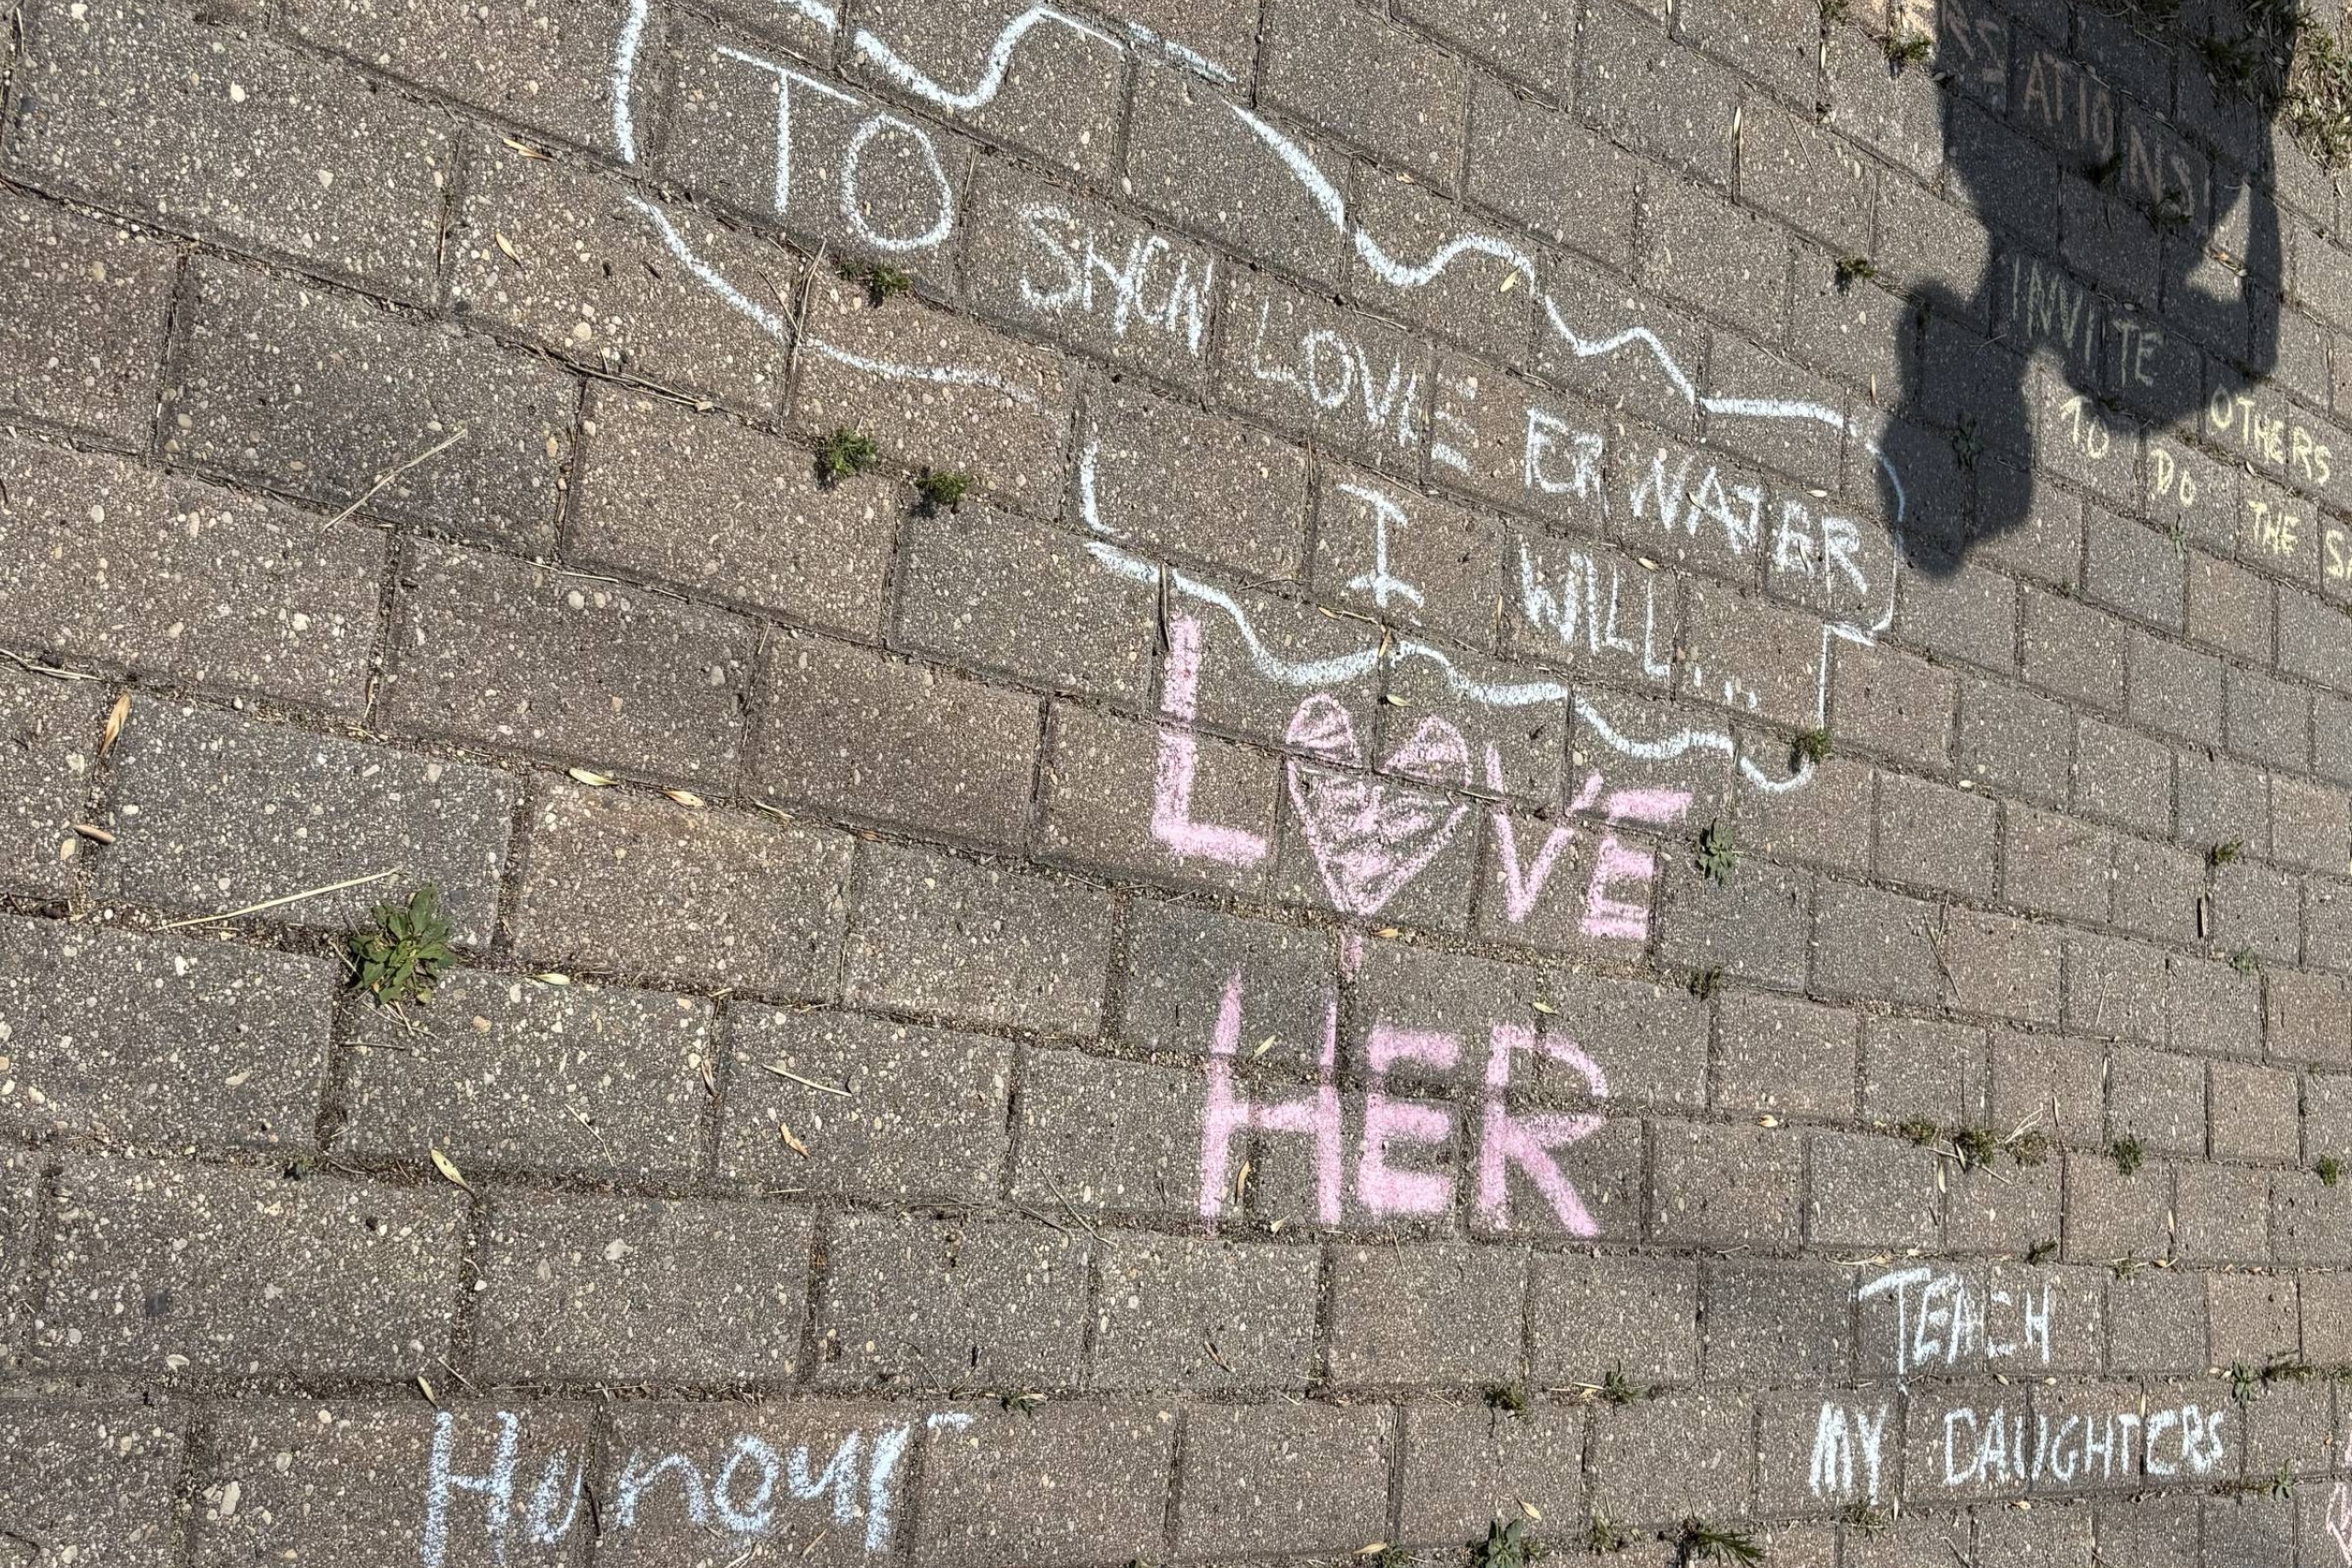 TO SHOW LOVE FOR WATER
I WILL...
LOVE
HER
Honour
TEACH
MY DAUGHTERS
ATIONS
INVITE OTHERS
TO DO THE